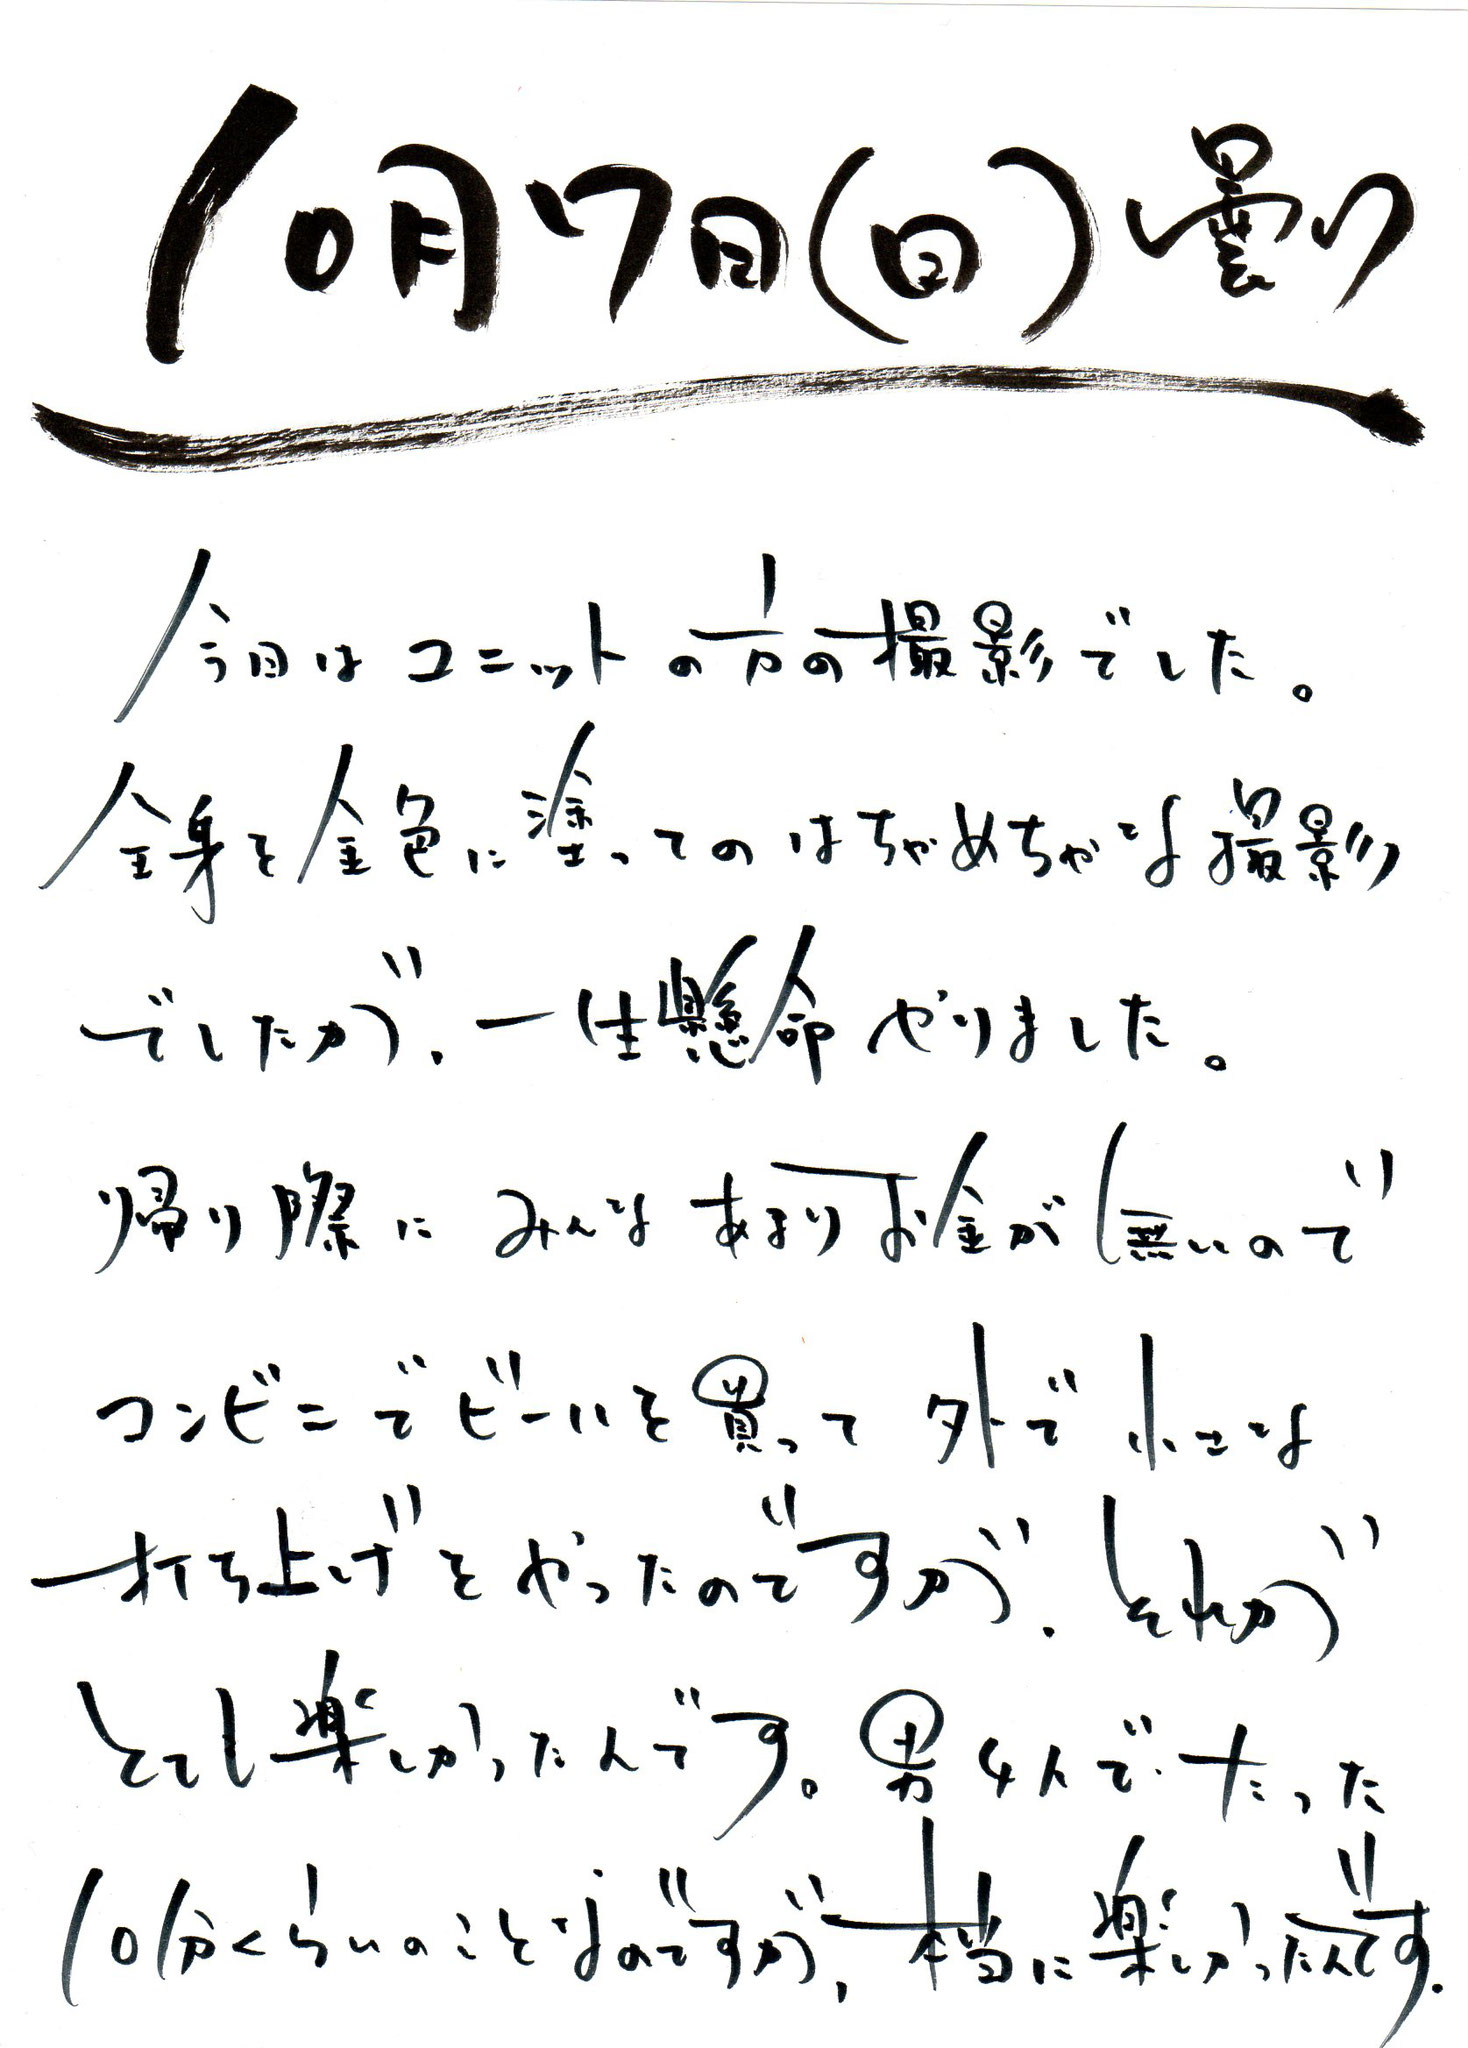 10月7日(日)曇り
今日はユニットの方の撮影でした。
全身を金色に塗ってのはちゃめちゃな撮影
でしたが、一生懸命やりました。
帰り際にみんなあまりお金が無いので
コンビニでビールを買って外で小さな
打ち上げをやったのですが、それが
とても楽しかったんです。男4人でたった
10分くらいのことなのですが、本当に楽しかったんです。